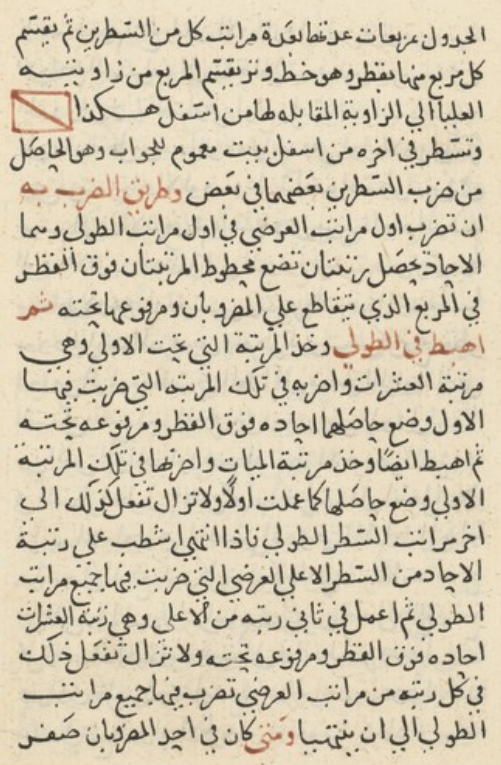 الجدول بمربعات عدتها بعدة مراتب كل من السطرين ثم يقسم
كل مربع منها بقطر وهو خط وتر يقسم المربع من زاويته
العليا الي الزاوية المقابلة لها من اسفل هكذا
وتسطر في اخره من اسفل بيت معموم للجواب وهو الحاصل
من ضرب السطرين بعضهما في بعض وطريق الضرب به
ان تضرب اول مراتب العرضي في اول مراتب الطولي وهما
الاحاد يحصل رتبتان تضع محطوط المرتبتان فوق القطر
في المربع الذي يتقاطع علي المضروبان ومرفوعها تحته ثم
اهبط في الطولي وخذ المرتبة التي تحت الاولي وهي
مرتبة العشرات واضربه في تلك المرتبه التي ضربت فيها
الاول وضع حاصلهما احاده فوق القطر ومرفوعه تحته
ثم اهبط ايضا وخذ مرتبة الميات واضربها في تلك المرتبة
الاولي وضع حاصلها كما عملت اولا ولا تزال تفعل كذلك الى
اخر مراتب السطر الطولي فاذا انتهي اشطب علي رتبة
الاحاد من السطر الاعلي العرضي التي ضربت فيها جميع مراتب
الطولي ثم اعمل في ثاني رتبه من الاعلي وهي رتبة العشرات
احاده فوق القطر ومرفوعه تحته ولا تزال تفعل ذلك
في كل رتبه من مراتب العرضي تضرب فيها جميع مراتب
الطولي الي ان ينتهيا ومتي كان في احد المضروبان صفر